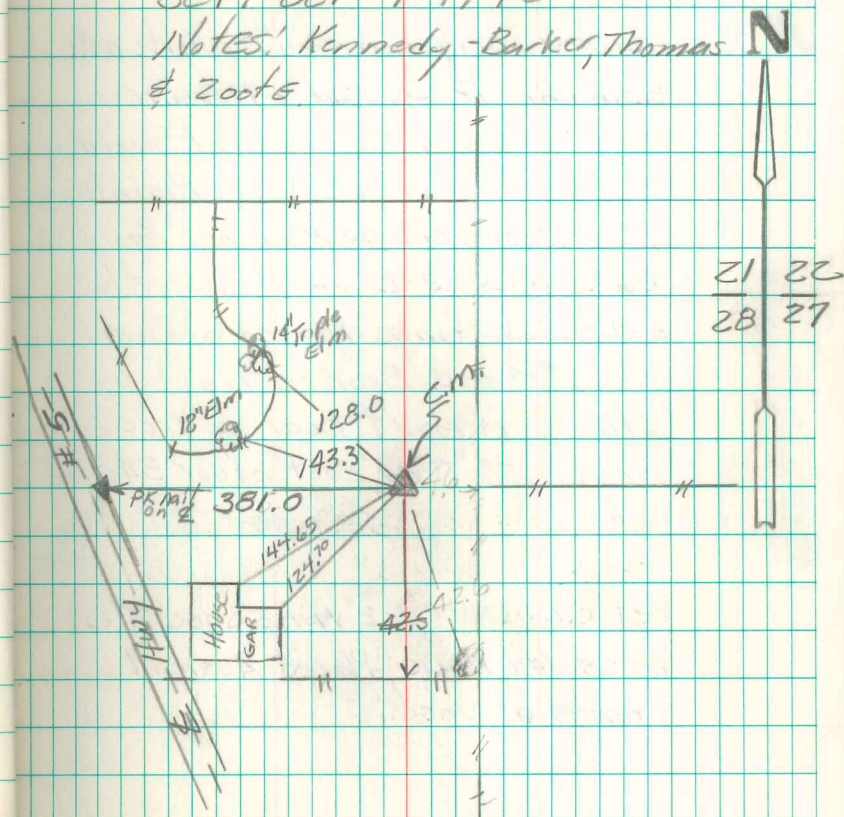 Notes: Kennedy - Barker, Thomas
& Zoote
N
21 22
28 27
14" Triple
Elm
C.M.
12" Elm
128.0
143.3
4.6
PK nail
on ℄
381.0
144.65
124.70
42.5
42.6
HOUSE
GAR
# 5
Hwy
℄